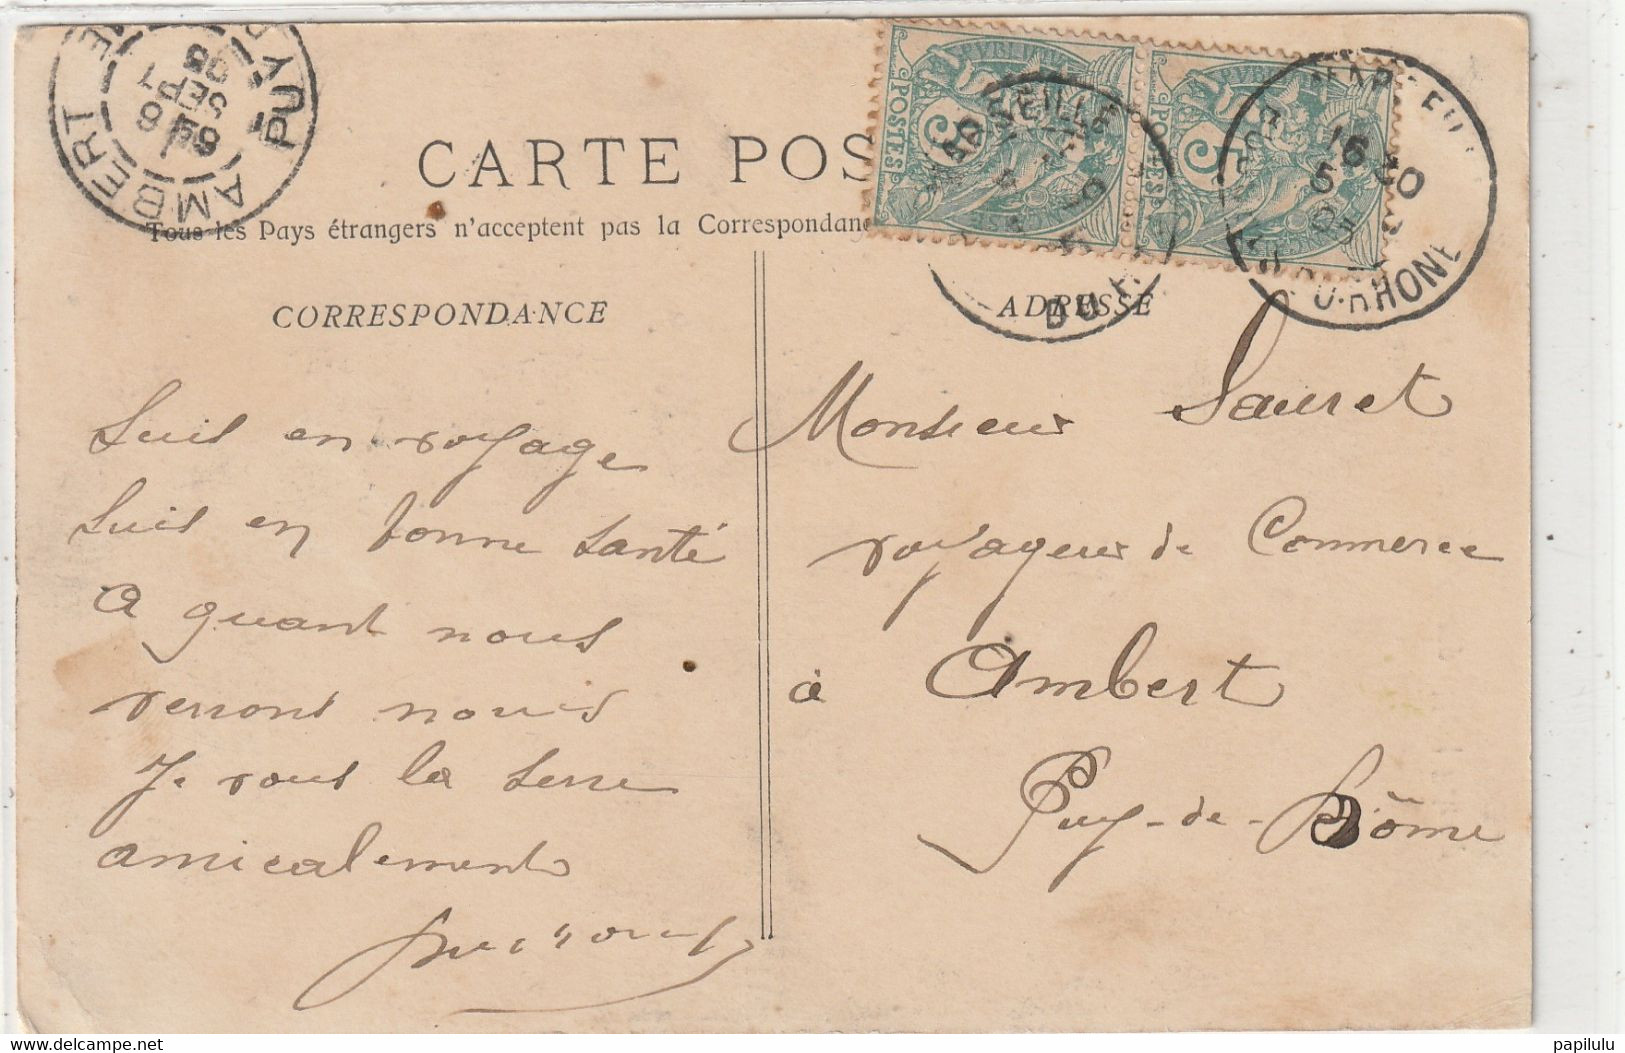 AMBERT
PUY
6
6 SEPT
05
CARTE POS
Tous les Pays étrangers n'acceptent pas la Correspondanc
RÉPUBLIQUE
POSTES
5
5
POSTES
SEILLE
DU
16 20
5
RHONE
CORRESPONDANCE
ADRESSE
Suis en voyage
Suis en bonne Santé
a quant nous
verrons nous
Je vous la serre
amicalement
Monsieur Sauret
voyageur de Commerce
à Ambert
Puy-de-Dôme
delcampe.net
papilulu